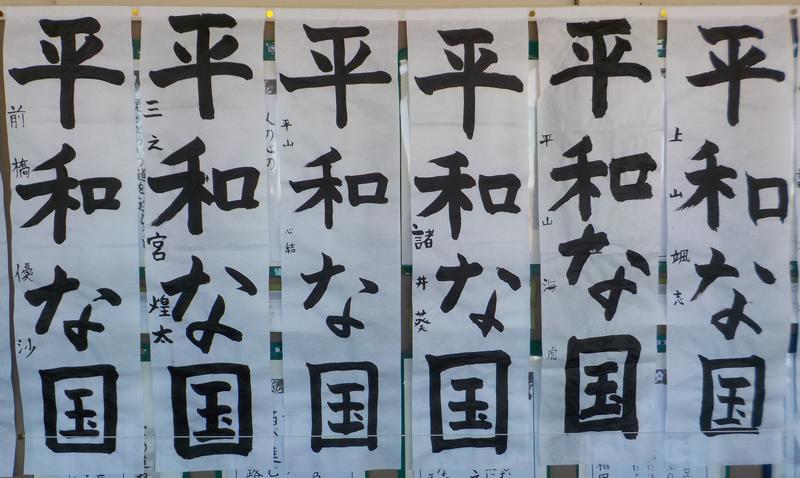 平和な国
上山颯志
平和な国
平山海虎
平和な国
諸井葵
平和な国
平山心結
平和な国
三之宮煌太
平和な国
前橋優沙